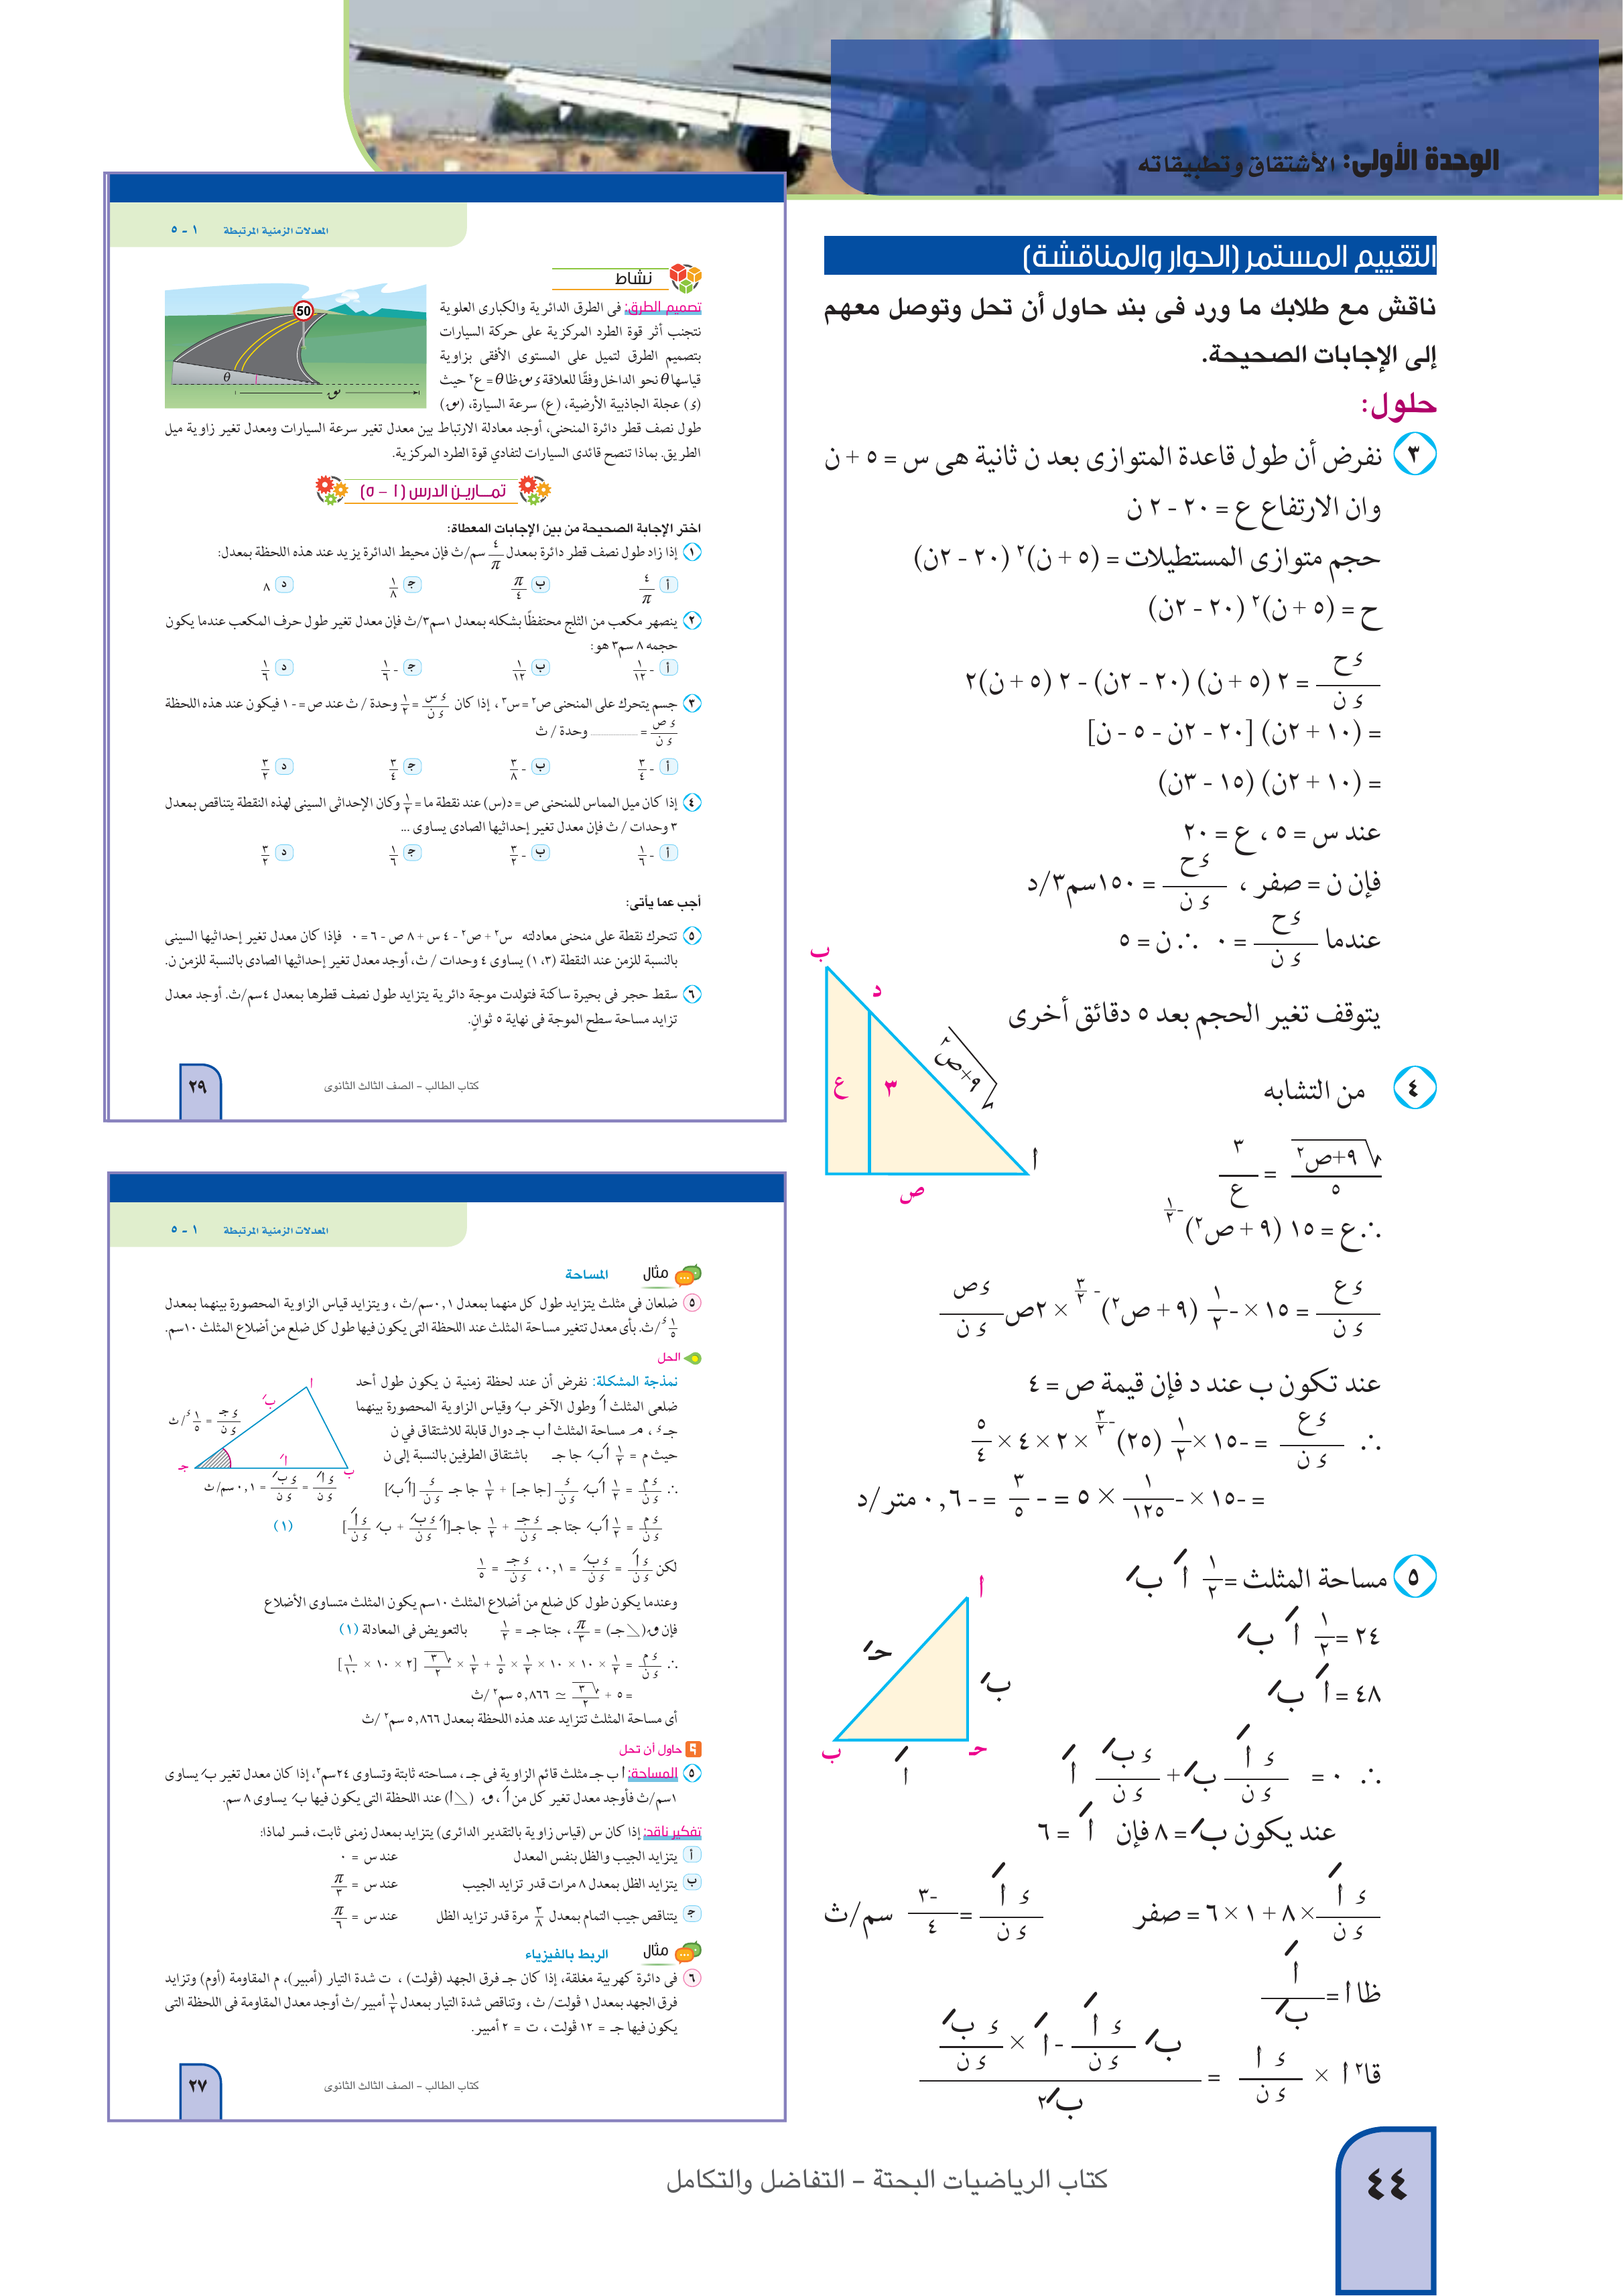 الوحدة الأولى: الأشتقاق وتطبيقاته
التقييم المستمر (الحوار والمناقشة)
ناقش مع طلابك ما ورد فى بند حاول أن تحل وتوصل معهم
إلى الإجابات الصحيحة.
حلول:
٣ نفرض أن طول قاعدة المتوازى بعد ن ثانية هى س = ٥ + ن
وان الارتفاع ع = ٢٠ - ٢ ن
حجم متوازى المستطيلات = (٥ + ن)٢ (٢٠ - ٢ن)
ح = (٥ + ن)٢ (٢٠ - ٢ن)
ءح/ءن = ٢ (٥ + ن) (٢٠ - ٢ن) - ٢ (٥ + ن)٢
= (١٠ + ٢ن) [٢٠ - ٢ن - ٥ - ن]
= (١٠ + ٢ن) (١٥ - ٣ن)
عند س = ٥ ، ع = ٢٠
فإن ن = صفر ، ءح/ءن = ١٥٠سم٣/د
عندما ءح/ءن = ٠ ∴ ن = ٥
يتوقف تغير الحجم بعد ٥ دقائق أخرى
ب
د
√٩+ص٢
ع
٣
أ
ص
٤ من التشابه
√٩+ص٢/٥ = ٣/ع
∴ ع = ١٥ (٩ + ص٢)-١/٢
ءع/ءن = ١٥ × -١/٢ (٩ + ص٢)-٣/٢ × ٢ص ءص/ءن
عند تكون ب عند د فإن قيمة ص = ٤
∴ ءع/ءن = -١٥ × ١/٢ (٢٥)-٣/٢ × ٢ × ٤ × ٥/٤
= -١٥ × -١/١٢٥ × ٥ = - ٣/٥ = - ٠,٦ متر/د
٥ مساحة المثلث = ١/٢ أَ بَ
٢٤ = ١/٢ أَ بَ
٤٨ = أَ بَ
∴ ٠ = ءأَ/ءن بَ + ءبَ/ءن أَ
عند يكون بَ = ٨ فإن أَ = ٦
ءأَ/ءن × ٨ + ١ × ٦ = صفر ءأَ/ءن = -٣/٤ سم/ث
ظا أ = أَ/بَ
قا٢ أ × ءأ/ءن = بَ ءأَ/ءن - أَ × ءبَ/ءن / بَ٢
أ
حَ
بَ
ب
حـ
أَ
المعدلات الزمنية المرتبطة ١ - ٥
نشاط
تصميم الطرق: فى الطرق الدائرية والكبارى العلوية
نتجنب أثر قوة الطرد المركزية على حركة السيارات
بتصميم الطرق لتميل على المستوى الأفقى بزاوية
قياسها θ نحو الداخل وفقًا للعلاقة ء نق ظا θ = ع٢ حيث
(ء) عجلة الجاذبية الأرضية، (ع) سرعة السيارة، (نق)
طول نصف قطر دائرة المنحنى، أوجد معادلة الارتباط بين معدل تغير سرعة السيارات ومعدل تغير زاوية ميل
الطريق. بماذا تنصح قائدى السيارات لتفادي قوة الطرد المركزية.
50
θ
نق
تمــاريـن الدرس (١ - ٥)
اختر الإجابة الصحيحة من بين الإجابات المعطاة:
١ إذا زاد طول نصف قطر دائرة بمعدل ٤/π سم/ث فإن محيط الدائرة يزيد عند هذه اللحظة بمعدل:
أ ٤/π ب π/٤ ج ١/٨ د ٨
٢ ينصهر مكعب من الثلج محتفظًا بشكله بمعدل ١سم٣/ث فإن معدل تغير طول حرف المكعب عندما يكون
حجمه ٨ سم٣ هو:
أ -١/١٢ ب ١/١٢ ج -١/٦ د ١/٦
٣ جسم يتحرك على المنحنى ص٢ = س٣ ، إذا كان ءس/ءن = ١/٢ وحدة / ث عند ص = - ١ فيكون عند هذه اللحظة
ءص/ءن = .......... وحدة / ث
أ -٣/٤ ب -٣/٨ ج ٣/٤ د ٣/٢
٤ إذا كان ميل المماس للمنحنى ص = د(س) عند نقطة ما = ١/٢ وكان الإحداثى السينى لهذه النقطة يتناقص بمعدل
٣ وحدات / ث فإن معدل تغير إحداثيها الصادى يساوى ...
أ -١/٦ ب -٣/٢ ج ١/٦ د ٣/٢
أجب عما يأتى:
٥ تتحرك نقطة على منحنى معادلته س٢ + ص٢ - ٤ س + ٨ ص - ٦ = ٠ فإذا كان معدل تغير إحداثيها السينى
بالنسبة للزمن عند النقطة (٣، ١) يساوى ٤ وحدات / ث، أوجد معدل تغير إحداثيها الصادى بالنسبة للزمن ن.
٦ سقط حجر فى بحيرة ساكنة فتولدت موجة دائرية يتزايد طول نصف قطرها بمعدل ٤سم/ث. أوجد معدل
تزايد مساحة سطح الموجة فى نهاية ٥ ثوانٍ.
كتاب الطالب - الصف الثالث الثانوى
٢٩
المعدلات الزمنية المرتبطة ١ - ٥
مثال المساحة
٥ ضلعان فى مثلث يتزايد طول كل منهما بمعدل ٠,١سم/ث ، ويتزايد قياس الزاوية المحصورة بينهما بمعدل
١/٥ ء/ث. بأى معدل تتغير مساحة المثلث عند اللحظة التى يكون فيها طول كل ضلع من أضلاع المثلث ١٠سم.
الحل
نمذجة المشكلة: نفرض أن عند لحظة زمنية ن يكون طول أحد
ضلعى المثلث أَ وطول الآخر بَ وقياس الزاوية المحصورة بينهما
جـء ، م مساحة المثلث أ ب جـ دوال قابلة للاشتقاق في ن
حيث م = ١/٢ أَ بَ جا جـ باشتقاق الطرفين بالنسبة إلى ن
أ
بَ
ءجـ/ءن = ١/٥ ء/ث
جـ
أَ
ب
ءأَ/ءن = ءبَ/ءن = ٠,١سم/ث
∴ ءم/ءن = ١/٢ أَ بَ ء/ءن [جا جـ] + ١/٢ جا جـ ء/ءن [أَ بَ]
ءم/ءن = ١/٢ أَ بَ جتا جـ ءجـ/ءن + ١/٢ جا جـ[أَ ءبَ/ءن + بَ ءأَ/ءن] (١)
لكن ءأَ/ءن = ءبَ/ءن = ٠,١ ، ءجـ/ءن = ١/٥
وعندما يكون طول كل ضلع من أضلاع المثلث ١٠سم يكون المثلث متساوى الأضلاع
فإن ق(∠جـ) = π/٣ ، جتا جـ = ١/٢ بالتعويض فى المعادلة (١)
∴ ءم/ءن = ١/٢ × ١٠ × ١٠ × ١/٢ × ١/٥ + ١/٢ × √٣/٢ [٢ × ١٠ × ١/١٠]
= ٥ + √٣/٢ ≃ ٥,٨٦٦ سم٢ /ث
أى مساحة المثلث تتزايد عند هذه اللحظة بمعدل ٥,٨٦٦ سم٢ /ث
حاول أن تحل
٥ المساحة: أ ب جـ مثلث قائم الزاوية فى جـ ، مساحته ثابتة وتساوى ٢٤سم٢، إذا كان معدل تغير بَ يساوى
١سم/ث فأوجد معدل تغير كل من أَ ، ق (∠أ) عند اللحظة التى يكون فيها بَ يساوى ٨ سم.
تفكير ناقد: إذا كان س (قياس زاوية بالتقدير الدائرى) يتزايد بمعدل زمنى ثابت، فسر لماذا:
أ يتزايد الجيب والظل بنفس المعدل عند س = ٠
ب يتزايد الظل بمعدل ٨ مرات قدر تزايد الجيب عند س = π/٣
ج يتناقص جيب التمام بمعدل ٣/٨ مرة قدر تزايد الظل عند س = π/٦
مثال الربط بالفيزياء
٦ فى دائرة كهربية مغلقة، إذا كان جـ فرق الجهد (ڤولت) ، ت شدة التيار (أمبير)، م المقاومة (أوم) وتزايد
فرق الجهد بمعدل ١ ڤولت/ ث ، وتناقص شدة التيار بمعدل ١/٢ أمبير/ث أوجد معدل المقاومة فى اللحظة التى
يكون فيها جـ = ١٢ ڤولت ، ت = ٢ أمبير.
كتاب الطالب - الصف الثالث الثانوى
٢٧
كتاب الرياضيات البحتة - التفاضل والتكامل
٤٤